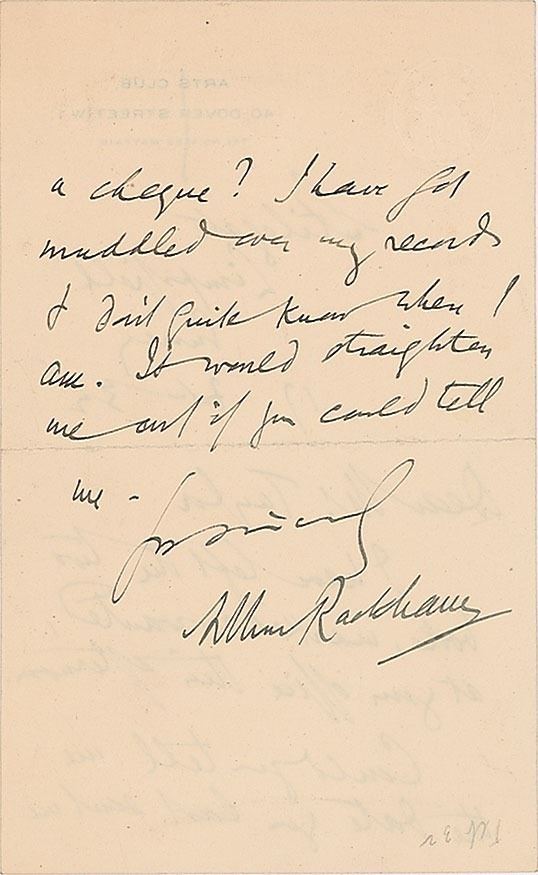 a cheque? I have got
muddled over my records
& don't quite know where I
am. It would straighten
me out if you could tell
me -
Yrs sincerely
Arthur Rackham